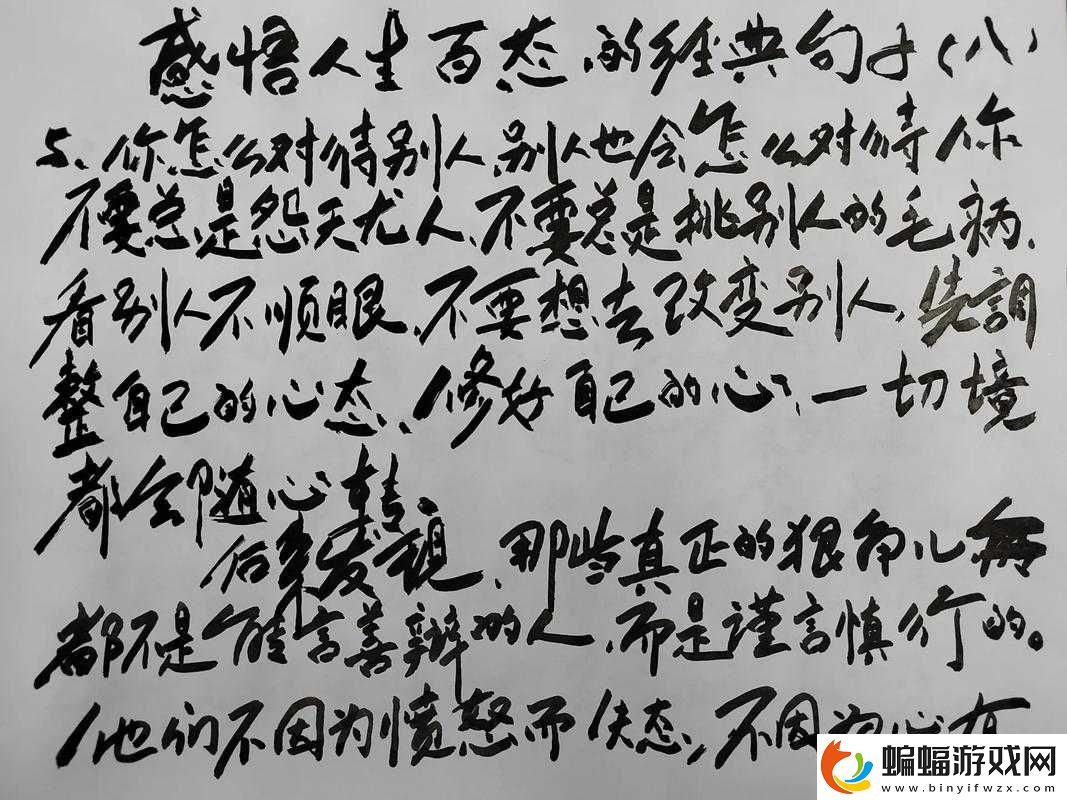 感悟人生百态的经典句子(八)
5、你怎么对待别人,别人也会怎么对待你
不要总是怨天尤人、不要总是挑别人的毛病、
看别人不顺眼、不要想去改变别人,先調
整自己的心态、修好自己的心、一切境
都会随心转。
后来发现,那些真正的狠角儿
都不是能言善辩的人,而是谨言慎行的。
他们不因为愤怒而失态,不因为心有
蝙蝠游戏网
www.binyifwzx.com